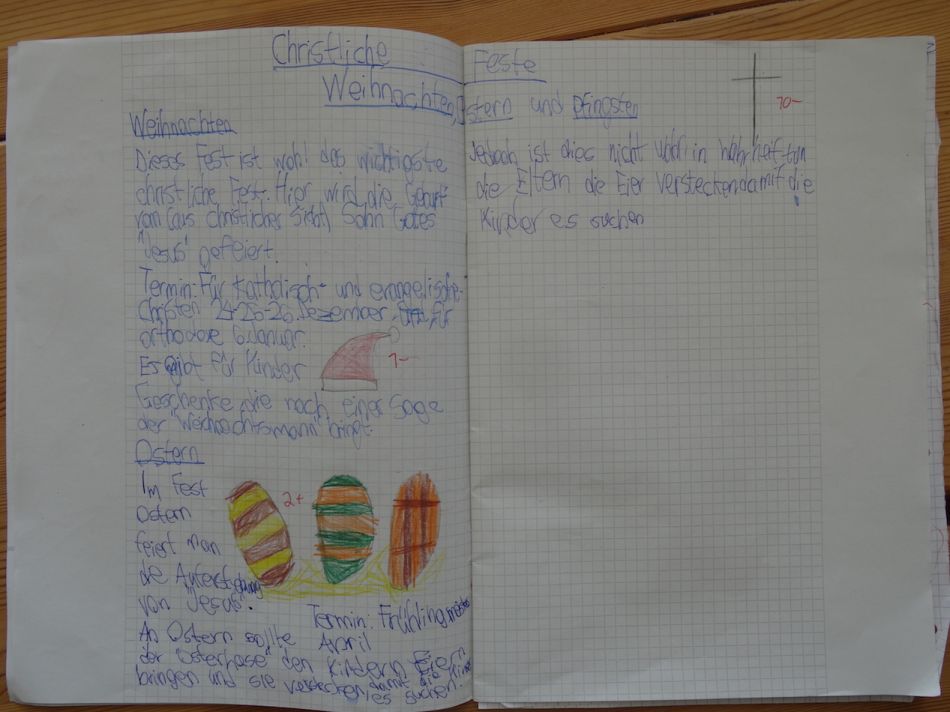 Christliche Feste
Weihnachten, Ostern und Pfingsten
Weihnachten
Dieses Fest ist wohl das wichtigste
christliche Fest. Hier wird die Geburt
von (aus christlicher Sicht) Sohn Gottes
"Jesus" gefeiert.
Termin: Für katholisch- und evangelische-
Christen 24-25-26. Dezember für
orthodoxe 6. Januar.
Es gibt für Kinder
1-
Geschenke, die nach einer Sage
der "Weihnachtsmann" bringt.
Ostern
Im Fest
2+
Ostern
feiert man
die Auferstehung
von "Jesus".
Termin: Frühling meist
April
An Ostern sollte
der "Osterhase" den Kindern Eiern
bringen und sie verstecken damit die Kinder
es suchen.
10-
Jedoch ist dies nicht und in Wahrheit tun
die Eltern die Eier verstecken damit die
Kinder es suchen